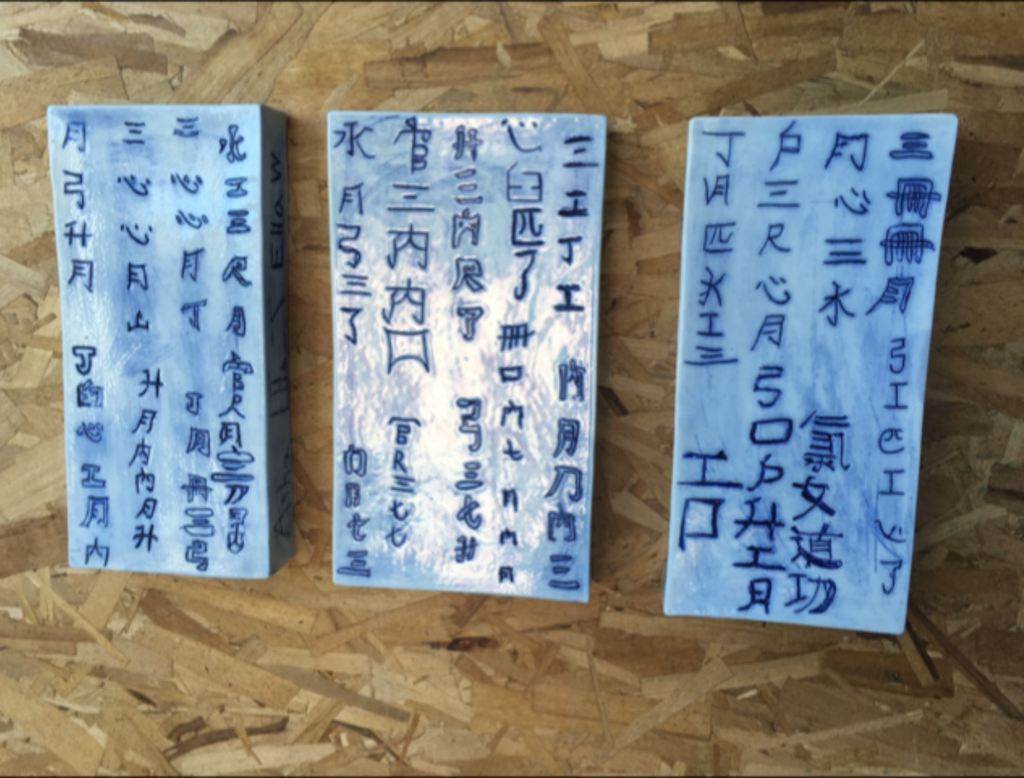 三冊冊月 弓工匹工心了
月心三水 氣女道功
尸三尺心月 弓口尸升工月
丁月匹水工三 工口
三工丁工 内月刀内三
心臼匹了 冊口内七内内内
升三内尺了 弓三七升
官三内内口 官尺三七七
水月弓三了 内月七三
水工三尺月 官尺月三刀
三心心月丁 丁月冊三弓
三心心月山 升月内内月升
月弓升月 丁心工月内